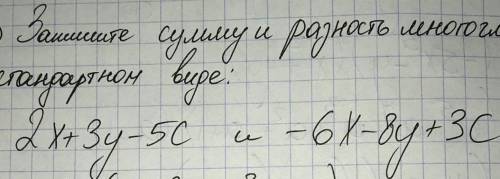 ) Запишите сумму и разность многочл
стандартном виде:
2x+3y-5c и -6x-8y+3c